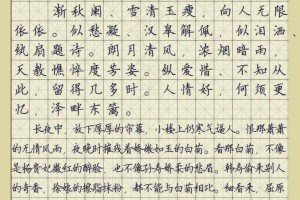 渐秋阑、雪清玉瘦，向人无限
依依。似愁凝、汉皋解佩，似泪洒、
纨扇题诗。朗月清风，浓烟暗雨，
天教憔悴度芳姿。纵爱惜、不知从
此，留得几多时。人情好，何须更
忆，泽畔东篱。
长夜中，放下厚厚的帘幕，小楼上仍寒气逼人。恨那萧萧
的无情风雨，夜晚时摧残着娇嫩如玉的白菊。看那白菊，不像
是杨贵妃微红的醉脸，也不像孙寿娇柔的愁眉。韩寿偷来别人
的奇香，徐娘的擦脂抹粉，都不能与白菊相比。细看来，屈原